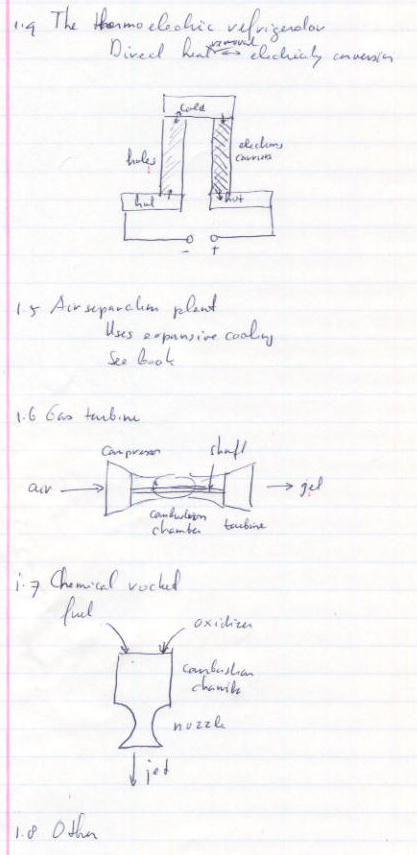 1.4 The thermoelectric refrigerator
removal
Direct heat ↔ electricity conversion
cold
holes
electrons
carriers
hot
hot
-
+
1.5 Air separation plant
Uses expansive cooling
See book
1.6 Gas turbine
compressor
shaft
air
jet
combustion
chamber
turbine
1.7 Chemical rocket
fuel
oxidizer
combustion
chamber
nozzle
jet
1.8 Other